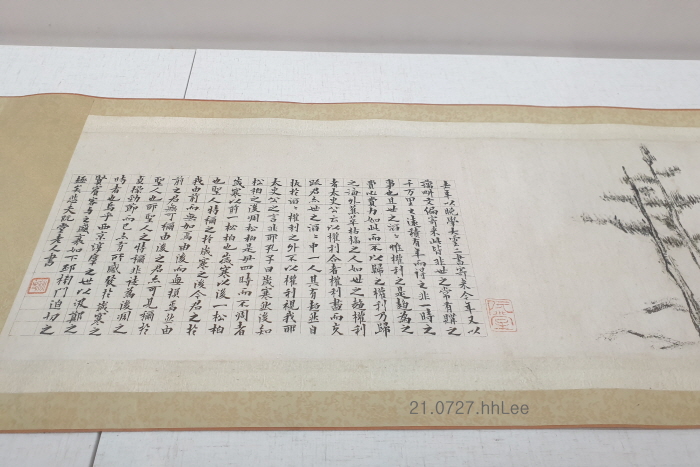 去年以晚學大雲二書寄來今年又以
藕畊文編寄來此皆非世之常有購之
千万里之遠積有年而得之非一時之
事也且世之滔〻惟權利之是趨爲之
費心費力如此而不以歸之權利乃歸
之海外蕉萃枯槁之人如世之趨權利
者太史公云以權利合者權利盡而交
踈君亦世之滔〻中一人其有超然自
拔於滔〻權利之外不以權利視我耶
太史公之言非耶孔子曰歲寒然後知
松栢之後凋松栢是毋四時而不凋者
歲寒以前一松栢也歲寒以後一松栢
也聖人特稱之於歲寒之後今君之於
我由前而無加焉由後而無損焉然由
前之君無可稱由後之君亦可見稱於
聖人也耶聖人之特稱非徒爲後凋之
貞操勁節而已亦有所感發於歲寒之
時者也烏乎西京淳厚之世以汲鄭之
賢賓客與之盛衰如下邳榜門迫切之
極矣悲夫阮堂老人書
阮堂
21.0727.hhLee